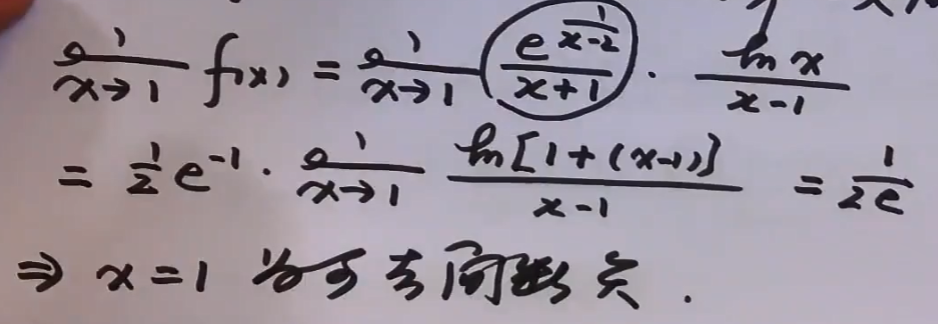 lim x→1 f(x) = lim x→1 e^(1/(x-2))/(x+1) · ln x/(x-1)
= 1/2 e^(-1) · lim x→1 ln[1+(x-1)]/(x-1) = 1/(2e)
⇒ x=1 为可去间断点.